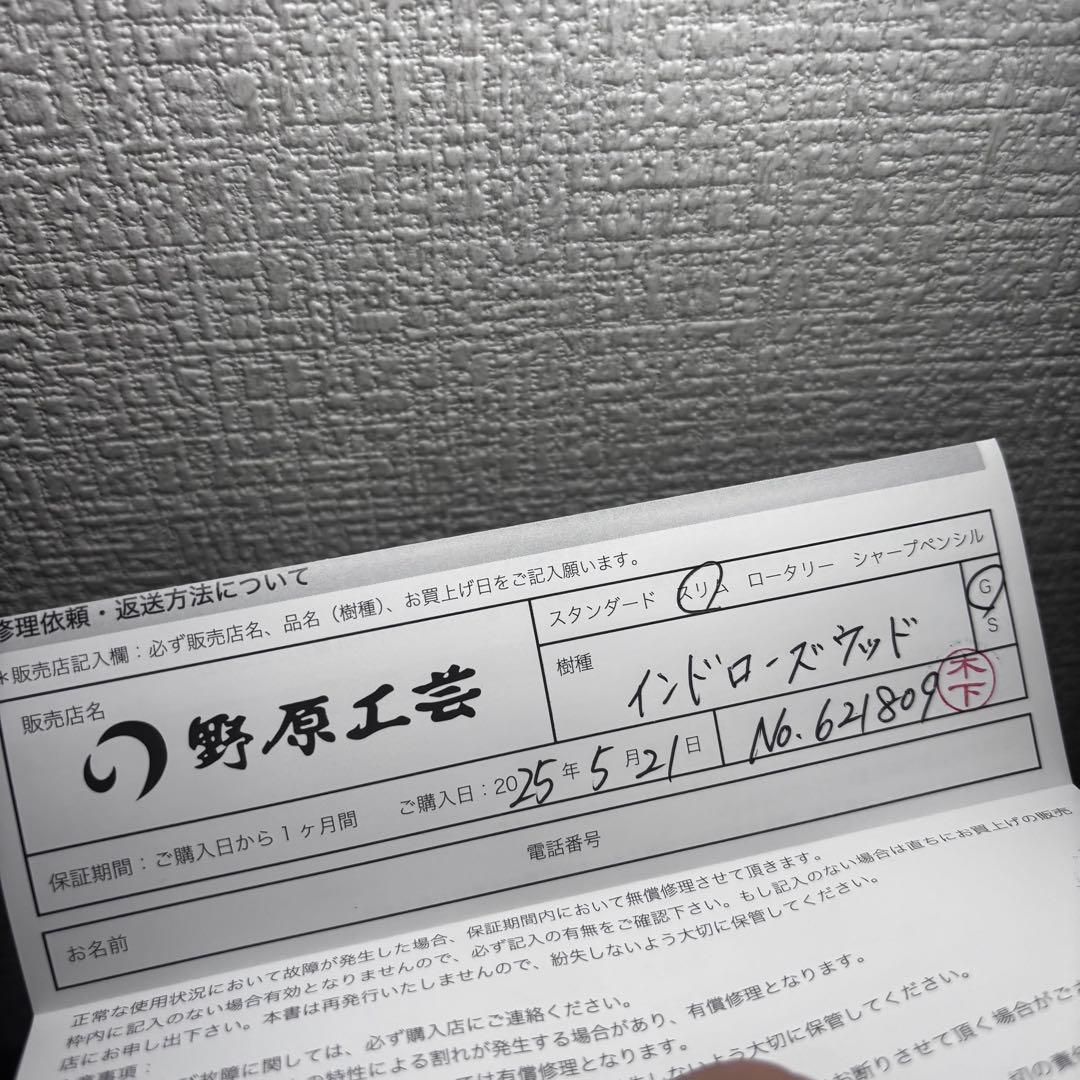 修理依頼・返送方法について
*販売店記入欄：必ず販売店名、品名（樹種）、お買上げ日をご記入願います。
販売店名
野原工芸
スタンダード スリム ロータリー シャープペンシル
G
S
樹種
インドローズウッド
木下
保証期間：ご購入日から1ヶ月間 ご購入日：2025年5月21日
No.621809
お名前
電話番号
正常な使用状況において故障が発生した場合、保証期間内において無償修理させて頂きます。
枠内に記入のない場合有効となりませんので、必ず記入の有無をご確認下さい。もし記入のない場合は直ちにお買上げの販売
店にお申し出下さい。本書は再発行いたしませんので、紛失しないよう大切に保管してください。
故障に関しては、必ず購入店にご連絡ください。
の特性による割れが発生する場合があり、有償修理となります。
ては有償修理となります。
しないよう大切に保管してください。
お断りさせて頂く場合がござ